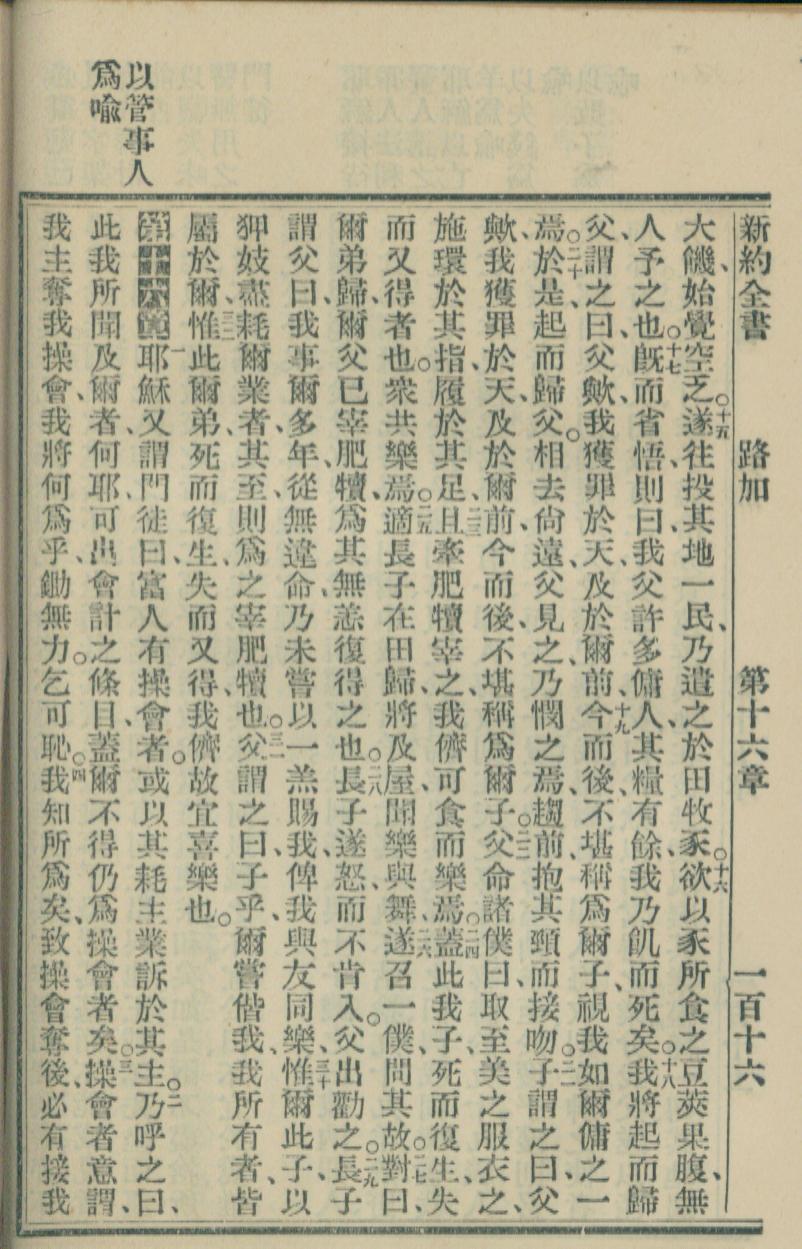 新約全書 路加 第十六章 一百十六
大饑、始覺空乏、○十五遂往投其地一民、乃遣之於田牧豕、○十六欲以豕所食之豆莢果腹、無
人予之也、○十七旣而省悟、則曰、我父許多傭人、其糧有餘、我乃飢而死矣、○十八我將起而歸
父、謂之曰、父歟、我獲罪於天、及於爾前、十九今而後、不堪稱爲爾子、視我如爾傭之一
焉、○二十於是起而歸父。相去尙遠、父見之、乃憫之焉、趨前抱其頸而接吻、○二一子謂之曰、父
歟、我獲罪於天、及於爾前、今而後、不堪稱爲爾子、○二二父命諸僕曰、取至美之服衣之、
施環於其指、履於其足、二三且牽肥犢宰之、我儕可食而樂焉、○二四蓋此我子、死而復生、失
而又得者也。衆共樂焉、○二五適長子在田歸、將及屋、聞樂與舞、二六遂召一僕、問其故、○二七對曰、
爾弟歸、爾父已宰肥犢、爲其無恙復得之也、○二八長子遂怒、而不肯入。父出勸之、○二九長子
謂父曰、我事爾多年、從無違命、乃未嘗以一羔賜我、俾我與友同樂、三十惟爾此子、以
狎妓蕩耗爾業者、其至、則爲之宰肥犢也、○三一父謂之曰、子乎、爾嘗偕我、我所有者、皆
屬於爾、三二惟此爾弟、死而復生、失而又得、我儕故宜喜樂也。
第十六章 一耶穌又謂門徒曰、富人有操會者。或以其耗主業、訴於其主、○二乃呼之曰、
此我所聞及爾者、何耶、可出會計之條目、蓋爾不得仍爲操會者矣、○三操會者意謂、
我主奪我操會、我將何爲乎、鋤無力。乞可恥、○四我知所爲矣、致操會奪後、必有接我
以管事人
爲喻